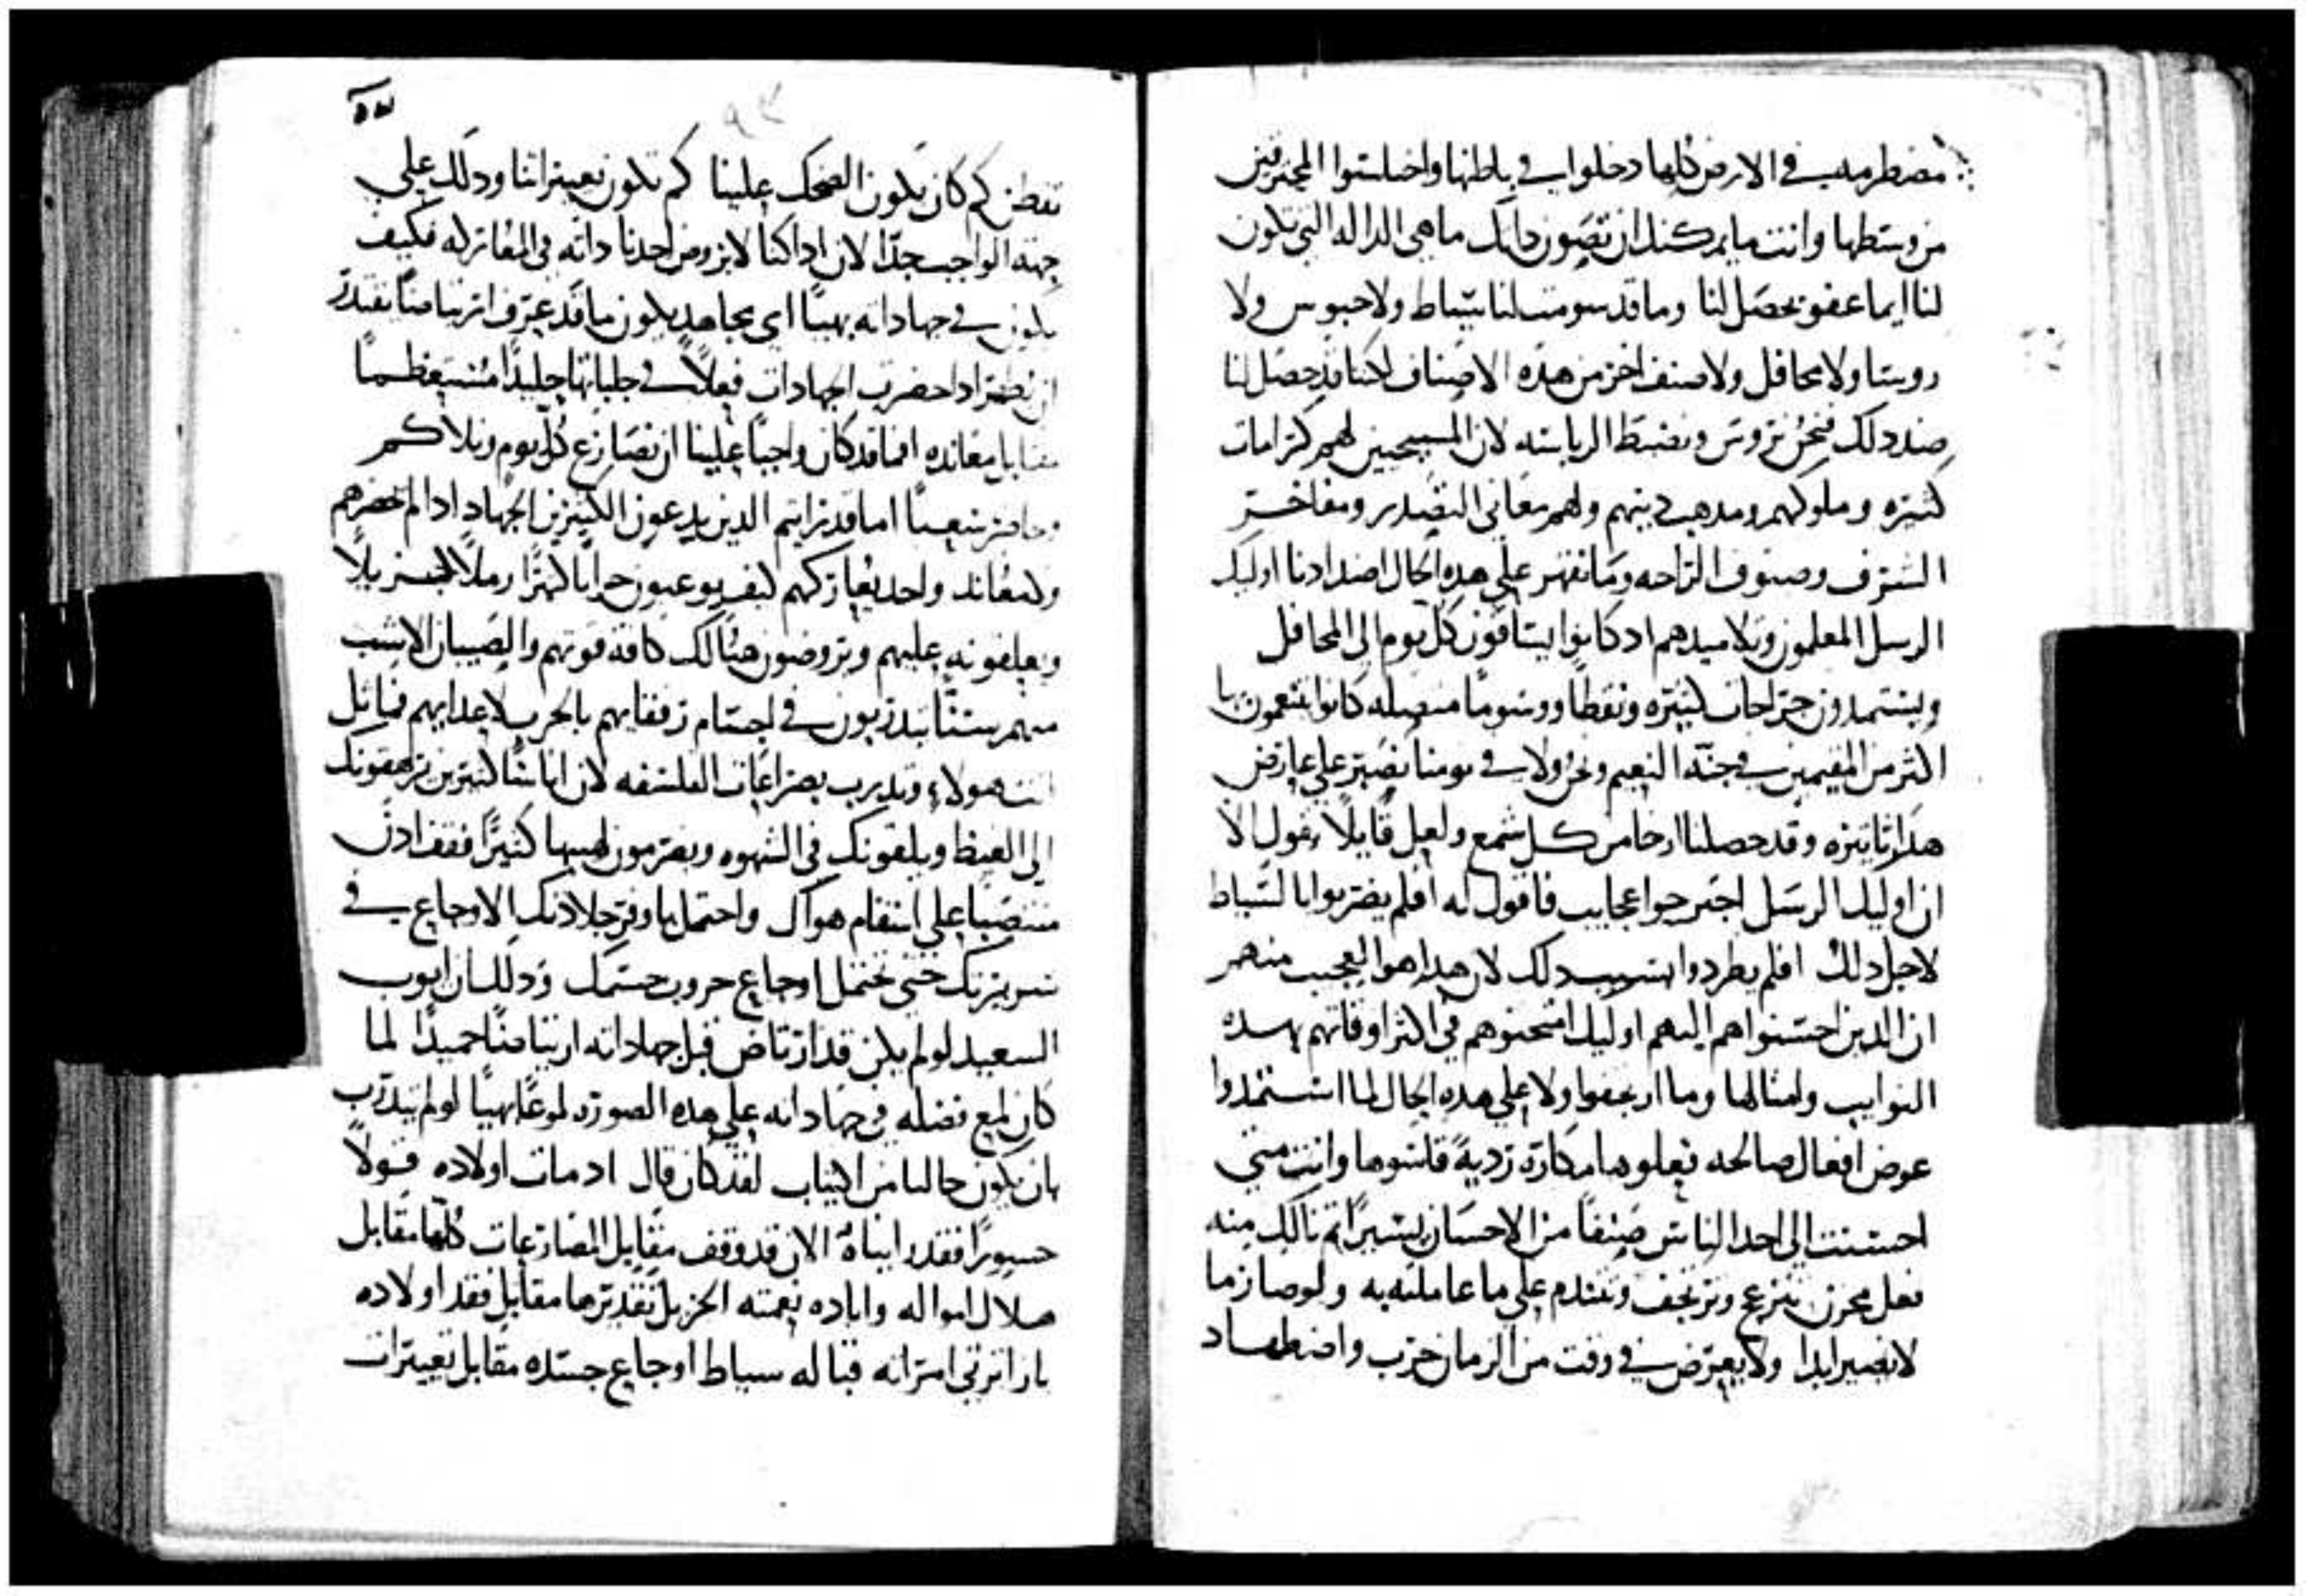 مضطرمه في الارض كلها دخلوا في باطنها واختلستوا المحترقين
من وستطها وانت ما يمكنك ان تصون داتك ما هي الداله التي تكون
لنا ايما عفو يحصل لنا وما قد سومت لنا شياط ولا حبوس ولا
روستا ولا محافل ولا صنف اخر من هده الاصناف لكنا قد حصل لنا
ضد دلك فنحن نروس ونضبط الرياسته لان المسيحيين لهم كرامات
كثيره وملوكهم ومدهب دينهم ولهم معاني التصدر ومفاخر
الشرف وصنوف الراحه وما نقهر علي هده الحال اضدادنا اوليك
الرسل المعلمون وتلاميدهم اد كانوا يستاقون كل يوم الي المحافل
ويستمدون جراحات كثيره ونقطا ووسوما متصله كانوا يتنعمون بها
اكثر من المقيمين في جنة النعيم ونحن ولا في نومنا نصبر علي عارض
هدا تاثيره وقد حصلنا ارخا من كل شمع ولعل قايلا يقول الا
ان اوليك الرسل اجترحوا عجايب فاقول له افلم يضربوا بالسياط
لاجل دلك افلم يطردوا بسبب دلك لان هدا هو العجيب منهم
ان الدين احسنوا هم اليهم اوليك امتحنوهم في اكثر اوقاتهم بهده
النوايب وامثالها وما ارتجفوا ولا علي هده الحال لما استمدوا
عوض افعال صالحه فعلوها مكاره رديه قاسوها وانت متي
احسنت الي احد الناس صنفا من الاحسان يسيرا تم نالك منه
فعل محزن تنزعج وترتجف وتتندم علي ما عاملته به ولو صار ما
لا يصير ابدا ولا يعرض في وقت من الزمان حرب واضطهاد
٥٧
تفطن كم كان يكون الضحك علينا كم تكون تعييراتنا ودلك علي
جهة الواجب جدا لان اداكنا لا يروض احدنا داته في المقاتله فكيف
يكون في جهاداته بهيا اي مجاهد يكون ما قد عرف مناً يقتدر
ادا حضرت الجهادات فعلا في جلباتها جليدا مستعظما
مقابل معانده افما قد كان واجبا علينا ان نصارع كل يوم ونلاكم
اما قد رايتم الدين يدعون الكثيرين الجهاد ادا لم يحضرهم
ولا معاند واحد يعاركهم كيف يوعبون جرابا كبيرا رملا جزيلا
ويعلقونه عليهم ويروضون هنالك كافة قوتهم والصبيان الاشب
منهم ستنا يتدربون في اجسام رفقايهم بالحرب لاعدايهم فماثل
انت هولاء وتدرب بصراعات الفلسفه لان اناسا كثيرين يرهقونك
الي الغيظ ويلقونك في الشهوه ويضرمون لهيبها كثيرا فقف ادن
منتصبا علي استقام هواك واحتمل باوفر جلادتك الاوجاع في
سريرتك حتي تحتمل اوجاع حروب جسمك ودلك ان ايوب
السعيد لو لم يكن قد ارتاض قبل جهاداته ارتياضا حميدا لما
كان لمع فضله في جهاداته علي هده الصوره لموعا بهيا لو لم يتدرب
بان يكون خالصا من الكتاب لقد كان قال اد مات اولاده قولا
جسورا فقد رايناه الان قد وقف مقابل المصارعات كلها مقابل
هلاك امواله واباده نعمته الجزيل تقديرها مقابل فقد اولاده
بازا ترثي امراته قباله سياط اوجاع جسده مقابل تعييرات